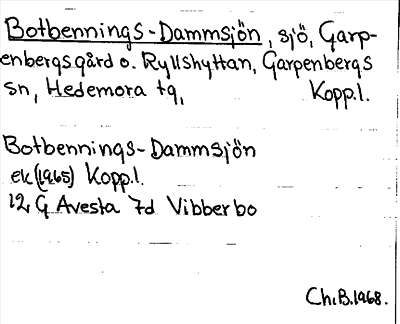 Botbennings-Dammsjön, sjö, Garp-
enbergsgård o. Ryllshyttan, Garpenbergs
sn, Hedemora tg, Kopp.l.
Botbennings-Dammsjön
ek (1965) Kopp.l.
12 G Avesta 7d Vibberbo
Ch.B.1968.